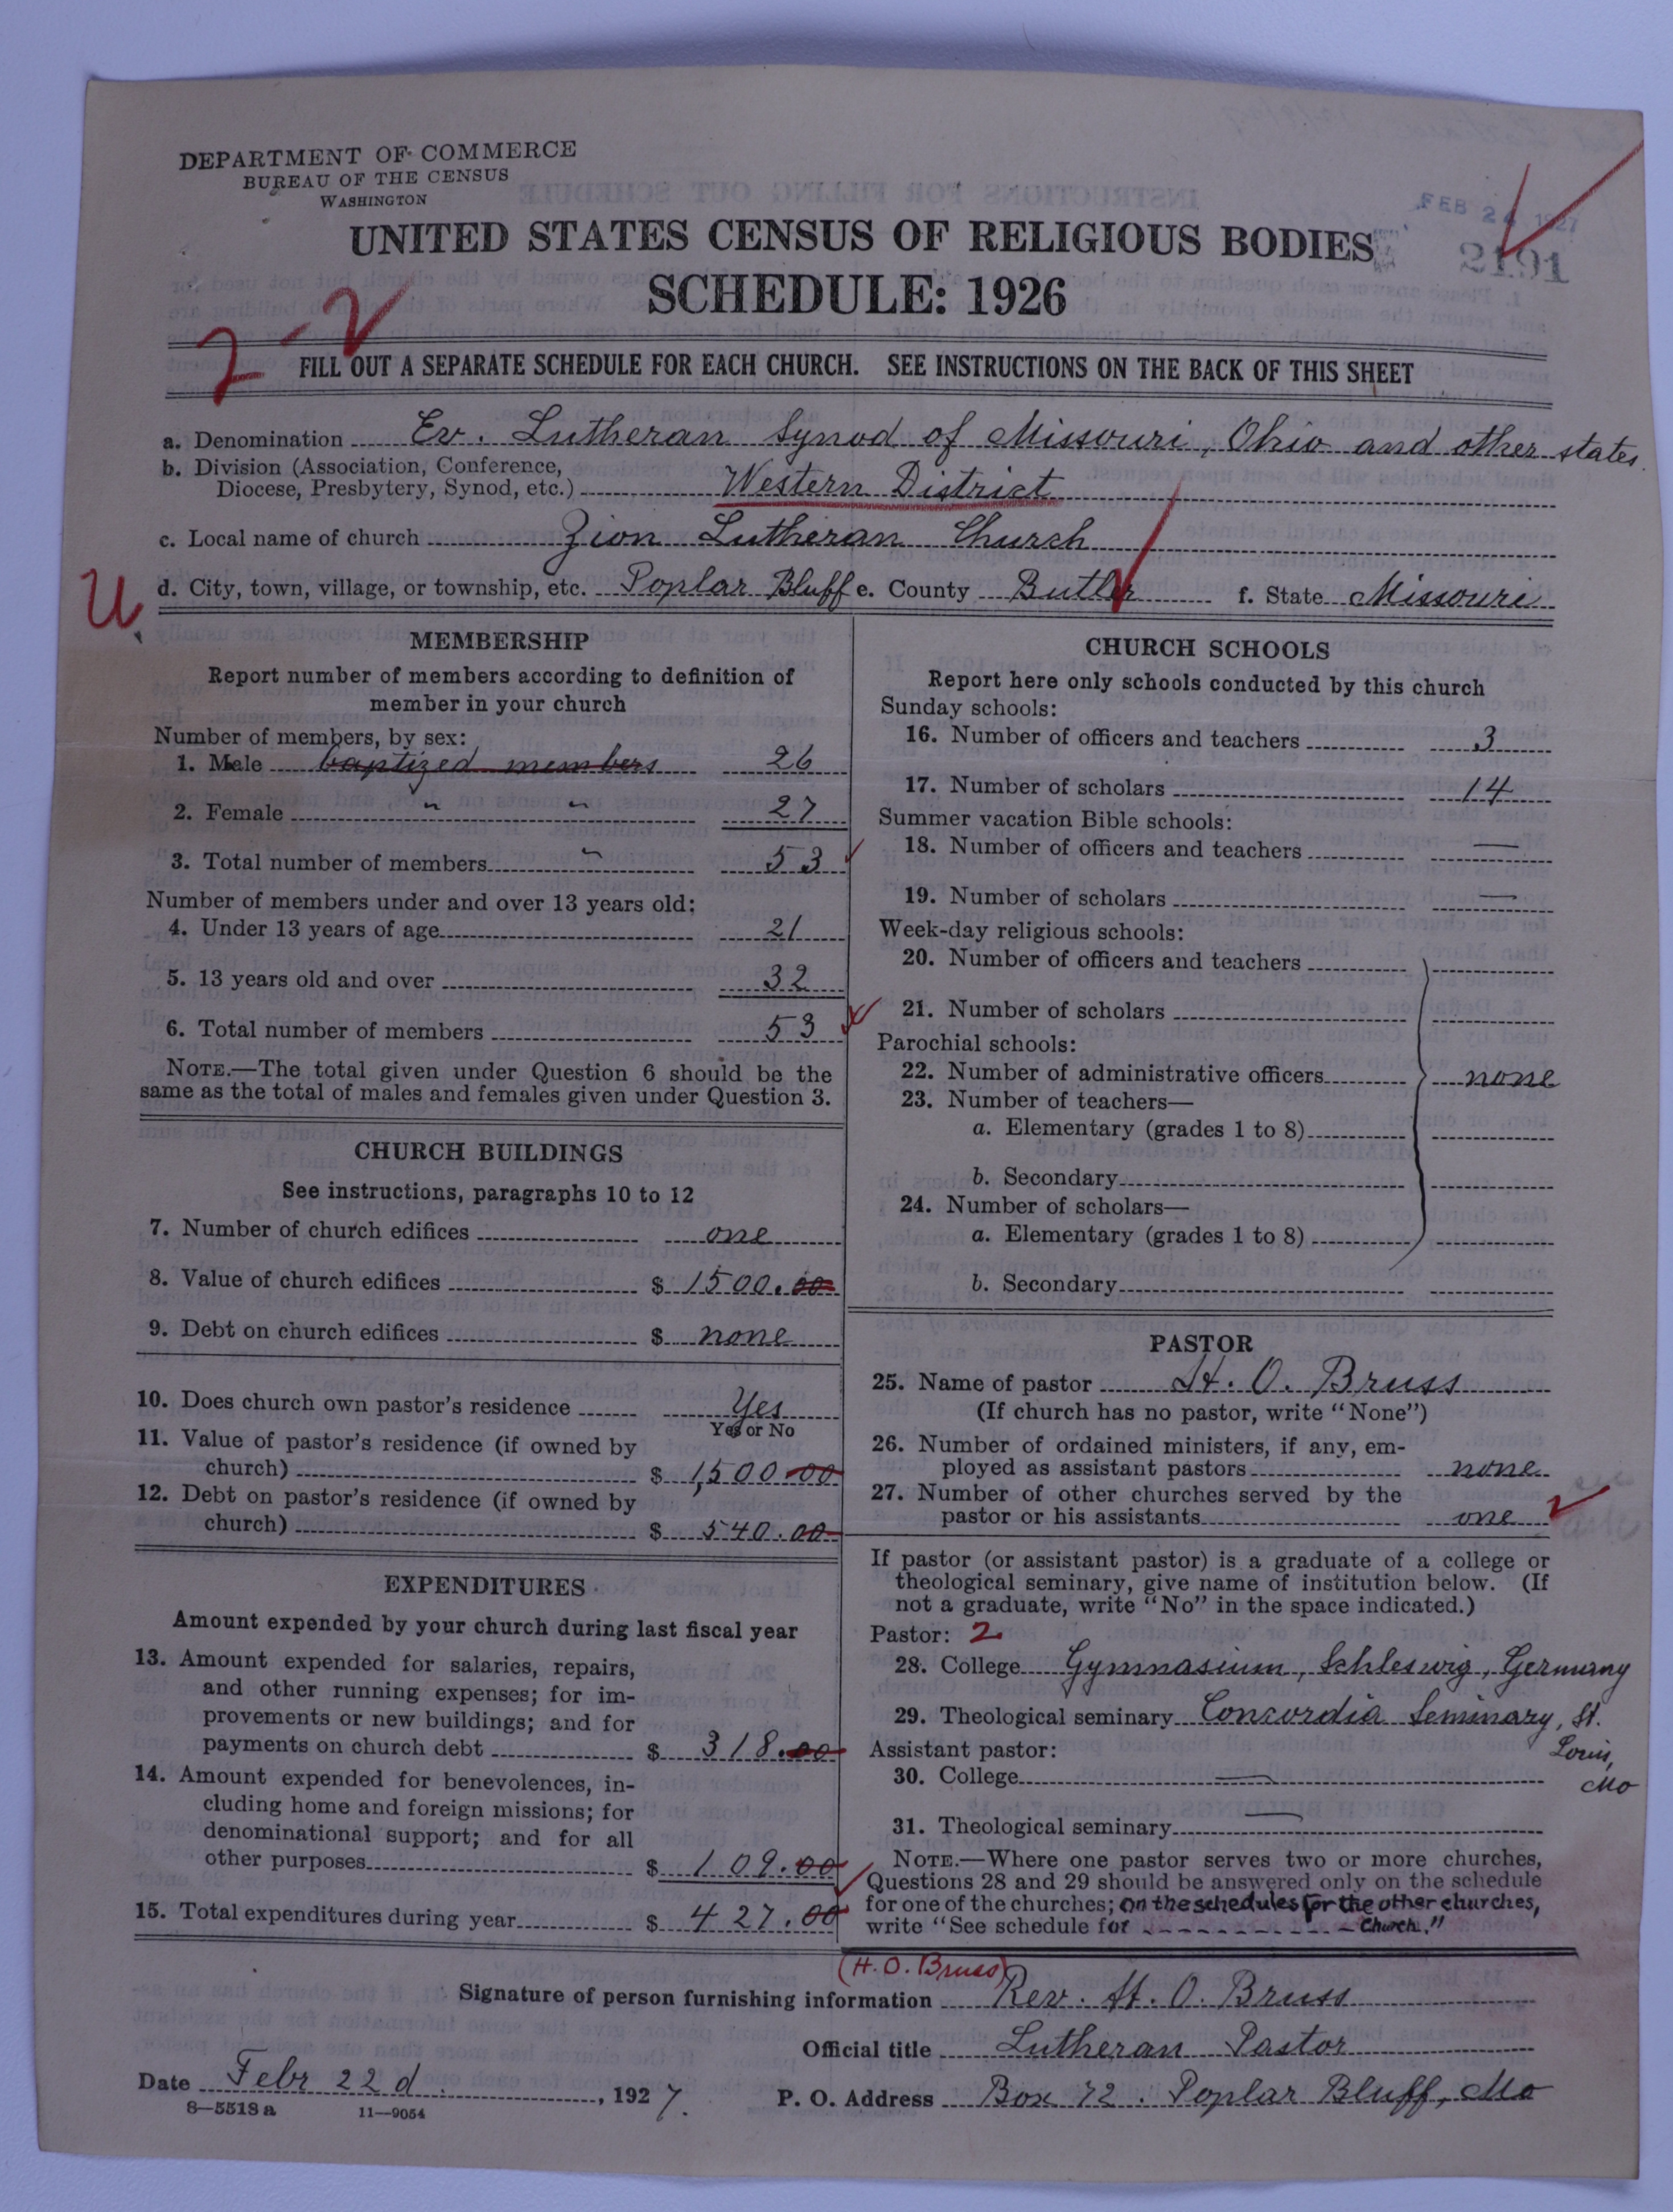 DEPARTMENT OF COMMERCE
BUREAU OF THE CENSUS
WASHINGTON
UNITED STATES CENSUS OF RELIGIOUS BODIES
SCHEDULE: 1926
FEB 24 1927
2191
2-2
FILL OUT A SEPARATE SCHEDULE FOR EACH CHURCH. SEE INSTRUCTIONS ON THE BACK OF THIS SHEET
a. Denomination Ev. Lutheran Synod of Missouri, Ohio and other states
b. Division (Association, Conference,
Diocese, Presbytery, Synod, etc.) Western District
c. Local name of church Zion Lutheran Church
U d. City, town, village, or township, etc. Poplar Bluff e. County Butler f. State Missouri
MEMBERSHIP
Report number of members according to definition of
member in your church
Number of members, by sex:
1. Male baptized members 26
2. Female " " 27
3. Total number of members " 53
Number of members under and over 13 years old:
4. Under 13 years of age 21
5. 13 years old and over 32
6. Total number of members 53
NOTE.—The total given under Question 6 should be the
same as the total of males and females given under Question 3.
CHURCH BUILDINGS
See instructions, paragraphs 10 to 12
7. Number of church edifices one
8. Value of church edifices $ 1500.00
9. Debt on church edifices $ none
10. Does church own pastor's residence Yes
Yes or No
11. Value of pastor's residence (if owned by
church) $ 1,500.00
12. Debt on pastor's residence (if owned by
church) $ 540.00
EXPENDITURES
Amount expended by your church during last fiscal year
13. Amount expended for salaries, repairs,
and other running expenses; for im-
provements or new buildings; and for
payments on church debt $ 318.00
14. Amount expended for benevolences, in-
cluding home and foreign missions; for
denominational support; and for all
other purposes $ 109.00
15. Total expenditures during year $ 427.00
CHURCH SCHOOLS
Report here only schools conducted by this church
Sunday schools:
16. Number of officers and teachers 3
17. Number of scholars 14
Summer vacation Bible schools:
18. Number of officers and teachers —
19. Number of scholars —
Week-day religious schools:
20. Number of officers and teachers
21. Number of scholars
Parochial schools:
22. Number of administrative officers none
23. Number of teachers—
a. Elementary (grades 1 to 8)
b. Secondary
24. Number of scholars—
a. Elementary (grades 1 to 8)
b. Secondary
PASTOR
25. Name of pastor H. O. Bruss
(If church has no pastor, write "None")
26. Number of ordained ministers, if any, em-
ployed as assistant pastors none
27. Number of other churches served by the
pastor or his assistants one
If pastor (or assistant pastor) is a graduate of a college or
theological seminary, give name of institution below. (If
not a graduate, write "No" in the space indicated.)
Pastor: 2
28. College Gymnasium, Schleswig, Germany
29. Theological seminary Concordia Seminary, St.
Louis,
Mo
Assistant pastor:
30. College —
31. Theological seminary —
NOTE.—Where one pastor serves two or more churches,
Questions 28 and 29 should be answered only on the schedule
for one of the churches; on the schedules for the other churches,
write "See schedule for Church."
(H. O. Bruss)
Signature of person furnishing information Rev. H. O. Bruss
Official title Lutheran Pastor
Date Febr 22d, 1927. P. O. Address Box 72. Poplar Bluff, Mo
8—5518a 11—9054